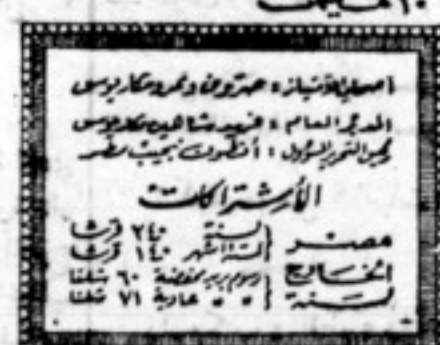 ١٠ مليمات
أصحاب الامتياز : صروف ونمر ومكاريوس
المدير العام : فريد شاهين مكاريوس
رئيس التحرير المسؤول : أنطون نجيب مطر
الاشتراكات
مصر { لسنة ٢٤٠ قرشا
لستة أشهر ١٤٠ قرشا
الخارج لسنة { رسوم بريد مخفضة ٦٠ شلنا
" " عادية ٧١ شلنا